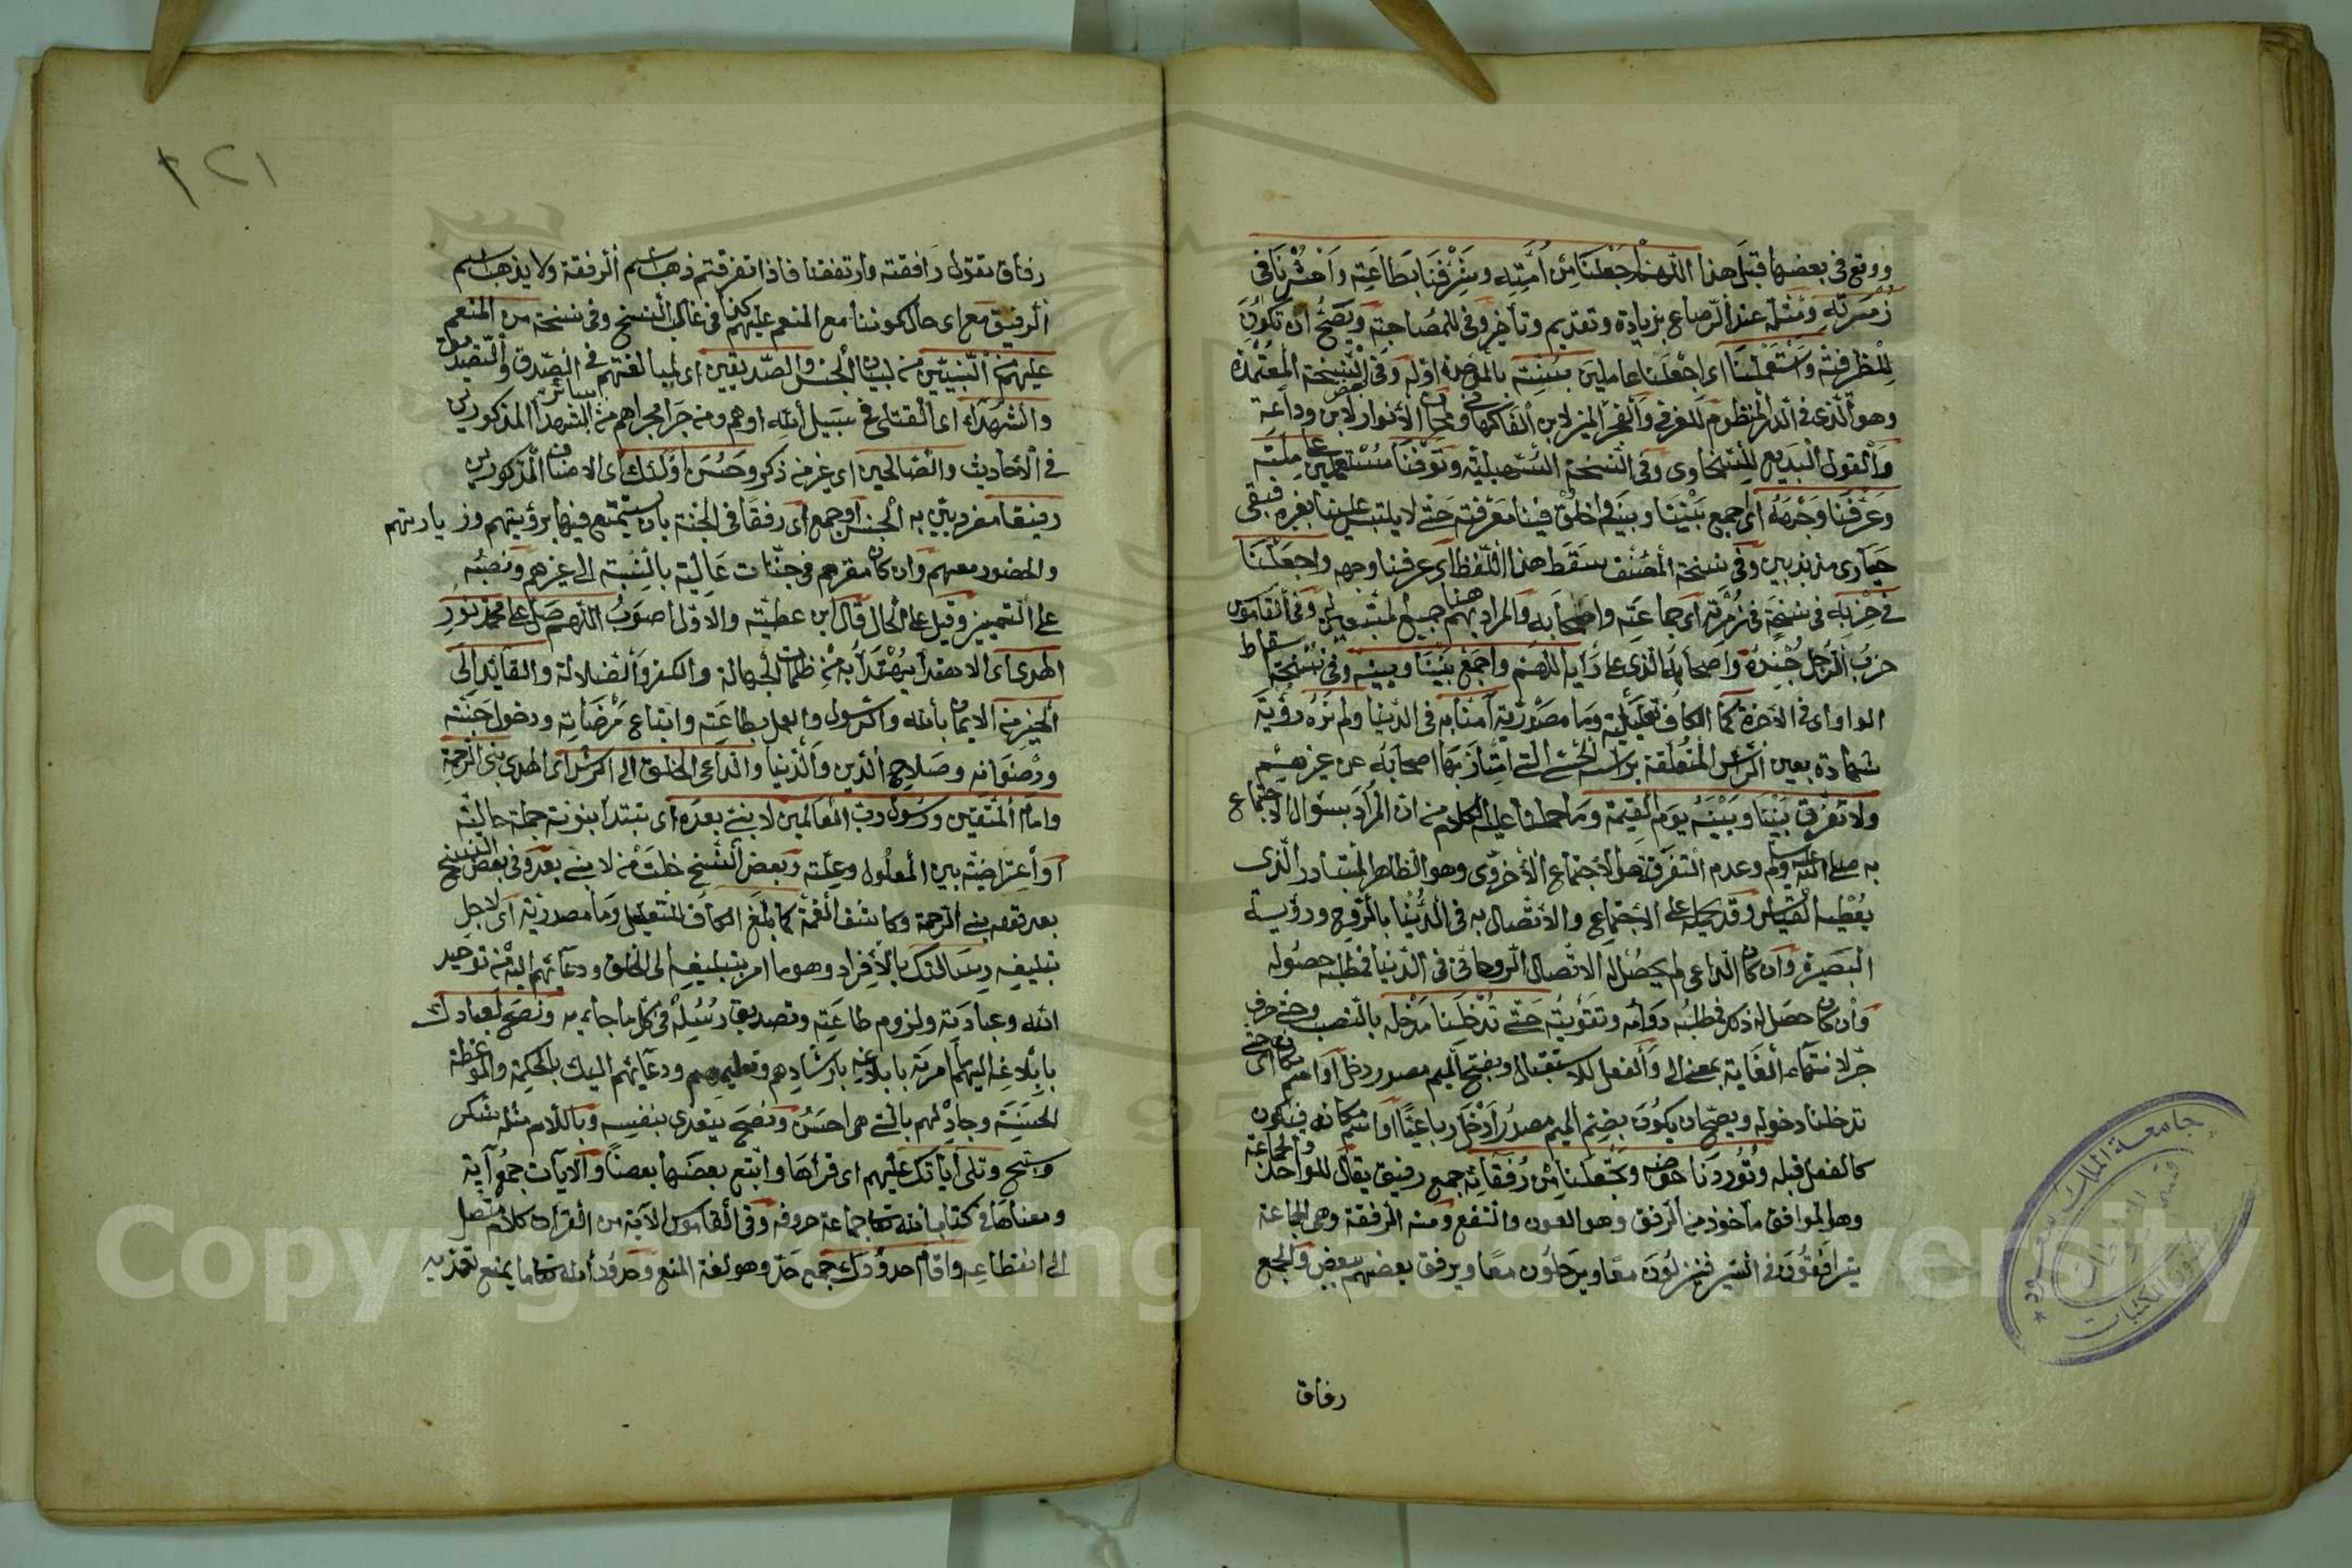 ووقع في بعضها قبل هذا اللهم اجعلنا من أمته وشرفنا بطاعته واحشرنا في
زمرته ومثله عند الرصاع بزيادة وتقديم وتأخير وفي للمصاحبة ويصح ان تكون
للظرفية واستعملنا اي اجعلنا عاملين بسنته بالموحدة اوله وفي النسخة المعتمدة
وهو الذي في الدر المنظوم للعزفي والفجر المنير لابن الفاكهاني الأنوار لابن وداعة
والقول البديع للسخاوي وفي النسخة السهيلية وتوفنا مستعملين على ملته
وعرفنا وجهه اي اجمع بيننا وبينه واخلق فينا معرفته حتى لا يلتبس علينا بغيره فنبقى
حيارى مذبذبين وفي نسخة المصنف سقط هذا اللفظ اي عرفنا وجهه واجعلنا
في حزبه في نسخة في زمرته اي جماعته واصحابه والمراد بهم هنا جميع المتبعين له وفي القاموس
حزب الرجل جنده واصحابه الذي على رأيه اللهم واجمع بيننا وبينه وفي نسخة اسقاط
الواو اي في الآخرة كما الكاف تعليلية وما مصدرية آمنا به في الدنيا ولم نره رؤية
شهادة بعين الرأس المتعلقة برأسه الحسي التي امتاز بها اصحابه عن غيرهم
ولا تفرق بيننا وبينه يوم القيمة وما حملنا عليه الكلام من ان المراد بسؤال الاجتماع
به صلى الله عليه وسلم وعدم التفرقة هو الاجتماع الأخروي وهو الظاهر المتبادر الذي
يعطيه القياس وقد يحمل على الاجتماع والاتصال به في الدنيا بالروح ورؤية
البصيرة وان كان الداعي لم يحصل له الاتصال الروحاني في الدنيا فطلبه حصوله
وان كان حصل له ذلك فطلبه دوامه وتقويته حتى تدخلنا مدخله بالنصب وحتى حرف
جر لانتهاء الغاية بمعنى الى والفعل للاستقبال وبفتح الميم مصدر دخل او اسم مكان اي حتى
تدخلنا دخوله ويصح ان يكون بضم الميم مصدر ادخل رباعيا او اسم مكانه فيكون
كالفعل قبله وتوردنا حوضه وتجعلنا من رفقائه جمع رفيق يقال للواحد والجماعة
وهو الموافق مأخوذ من الرفق وهو العون والنفع ومنه الرفقة وهي الجماعة
يترافقون في السير فينزلون معا ويرحلون معا ويرفق بعضهم ببعض والجمع
رفاق
٢٢١
رفاق تقول رافقته وارتفقنا فاذا تفرقتم ذهب اسم الرفقة ولا يذهب اسم
الرفيق مع اي حال كوننا مع المنعم عليهم كذا في غالب النسخ وفي نسخة من المنعم
عليهم من النبيين من لبيان الجنس والصديقين اي لمبالغتهم في الصدق والتصديق
والشهداء اي القتلى في سبيل الله او هم ومن جرا مجراهم من سائر الشهدا المذكورين
في الأحاديث والصالحين اي غير من ذكر وحسن اولئك اي الاصناف المذكورين
رفيقا مفرد بين به الجنس او جمع اي رفقا في الجنة بان يستمتع فيها برؤيتهم وزيارتهم
والحضور معهم وان كان مقرهم في جنات عالية بالنسبة الى غيرهم ونصبه
على التمييز وقيل على الحال قال ابن عطية والاول اصوب اللهم صل على محمد نور
الهدى اي الاهتدا يهتدا به من ظلمات الجهالة والكفر والضلالة والقائد الى
الخير من الايمان بالله والرسول والعمل بطاعته واتباع مرضاته ودخول جنته
ورضوانه وصلاح الدين والدنيا والداعي الخلق الى الرشد اي الهدى نبي الرحمة
وامام المتقين ورسول رب العالمين لا نبي بعده اي تبتدأ نبوته جملة حالية
او اعتراضية بين المعلول وعلته وبعض النسخ خلت من لا نبي بعده وفي بعض النسخ
بعد قوله نبي الرحمة وكاشف الغمة كما بلغ الكاف للتعليل وما مصدرية اي لاجل
تبليغه رسالتك بالأفراد وهو ما امر بتبليغه الى الخلق ودعائهم اليه من توحيد
الله وعبادته ولزوم طاعته وتصديق رسله في كل ما جاء به ونصح لعبادك
بابلاغه اليهم امرته بابلاغه بارشادهم وتعليمهم ودعائهم اليك بالحكمة والموعظة
الحسنة وجادلهم بالتي هي احسن ونصح يتعدى بنفسه وباللام مثله شكر
وسبح وتلى آياتك عليهم اي قرأها واتبع بعضها بعضا والآيات جمع آية
ومعناها في كتاب الله تعالى جماعة حروفه وفي القاموس الآية من القرآن كلام متصل
الى انقطاعه واقام حدودك جمع حد وهو لغة المنع وحدود الله تعالى ما يمنع تعديه
جامعة الملك سعود
Copyright © King Saud University